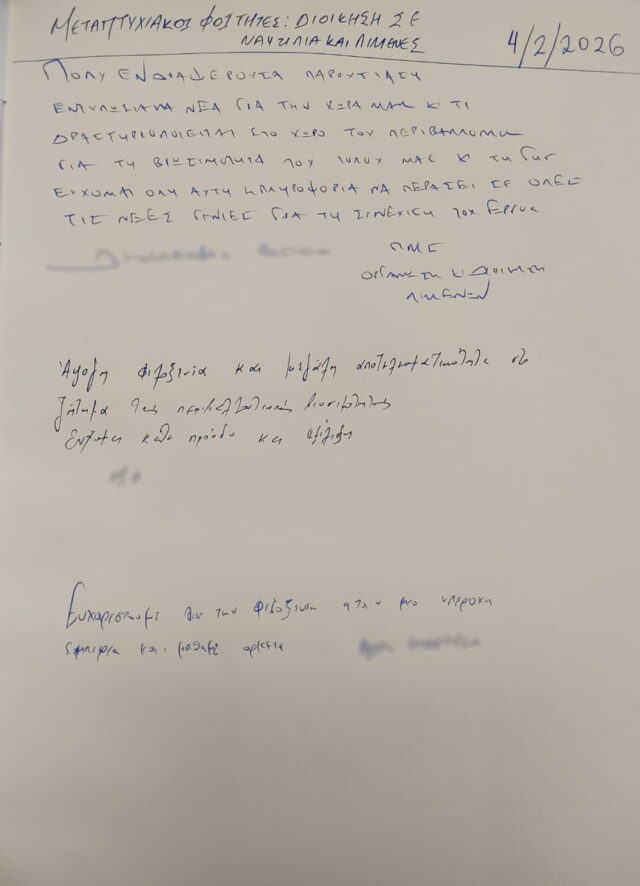 ΜΕΤΑΠΤΥΧΙΑΚΟΙ ΦΟΙΤΗΤΕΣ: ΔΙΟΙΚΗΣΗ ΣΕ
ΝΑΥΤΙΛΙΑ ΚΑΙ ΛΙΜΕΝΕΣ
4/2/2026
ΠΟΛΥ ΕΝΔΙΑΦΕΡΟΥΣΑ ΠΑΡΟΥΣΙΑΣΗ
ΝΕΑ ΓΙΑ ΤΗΝ ΧΩΡΑ ΜΑΣ Κ ΤΙ
ΔΡΑΣΤΥΡΙΟΠΟΙΕΙΤΑΙ ΣΤΟ ΧΩΡΟ ΤΟΥ
ΓΙΑ ΤΗ ΒΙΩΣΙΜΟΤΗΤΑ ΤΟΥ ΤΟΠΟΥ ΜΑΣ Κ ΤΗ ΓΗΣ
ΕΥΧΟΜΑΙ ΟΛΗ ΑΥΤΗ Η ΠΛΗΡΟΦΟΡΙΑ ΝΑ ΠΕΡΑΣΕΙ ΣΕ ΟΛΕΣ
ΤΙΣ ΝΕΕΣ ΓΕΝΙΕΣ ΓΙΑ ΤΗ ΣΥΝΕΧΙΣΗ ΤΟΥ ΕΡΓΟΥ
ΠΜΣ
ΟΡΓΑΝΩΣΗ Κ ΔΙΟΙΚΗΣΗ
ΛΙΜΕΝΩΝ
Άψογη φιλοξενία και μεγάλη αποτελεσματικότητα στο
ζήτημα της περιβαλλοντικής βιωσιμότητας
Εύχομαι κάθε πρόοδο και εξέλιξη
Ευχαριστουμε για την φιλοξενια ηταν μια υπεροχη
εμπειρια και μαθαμε αρκετα